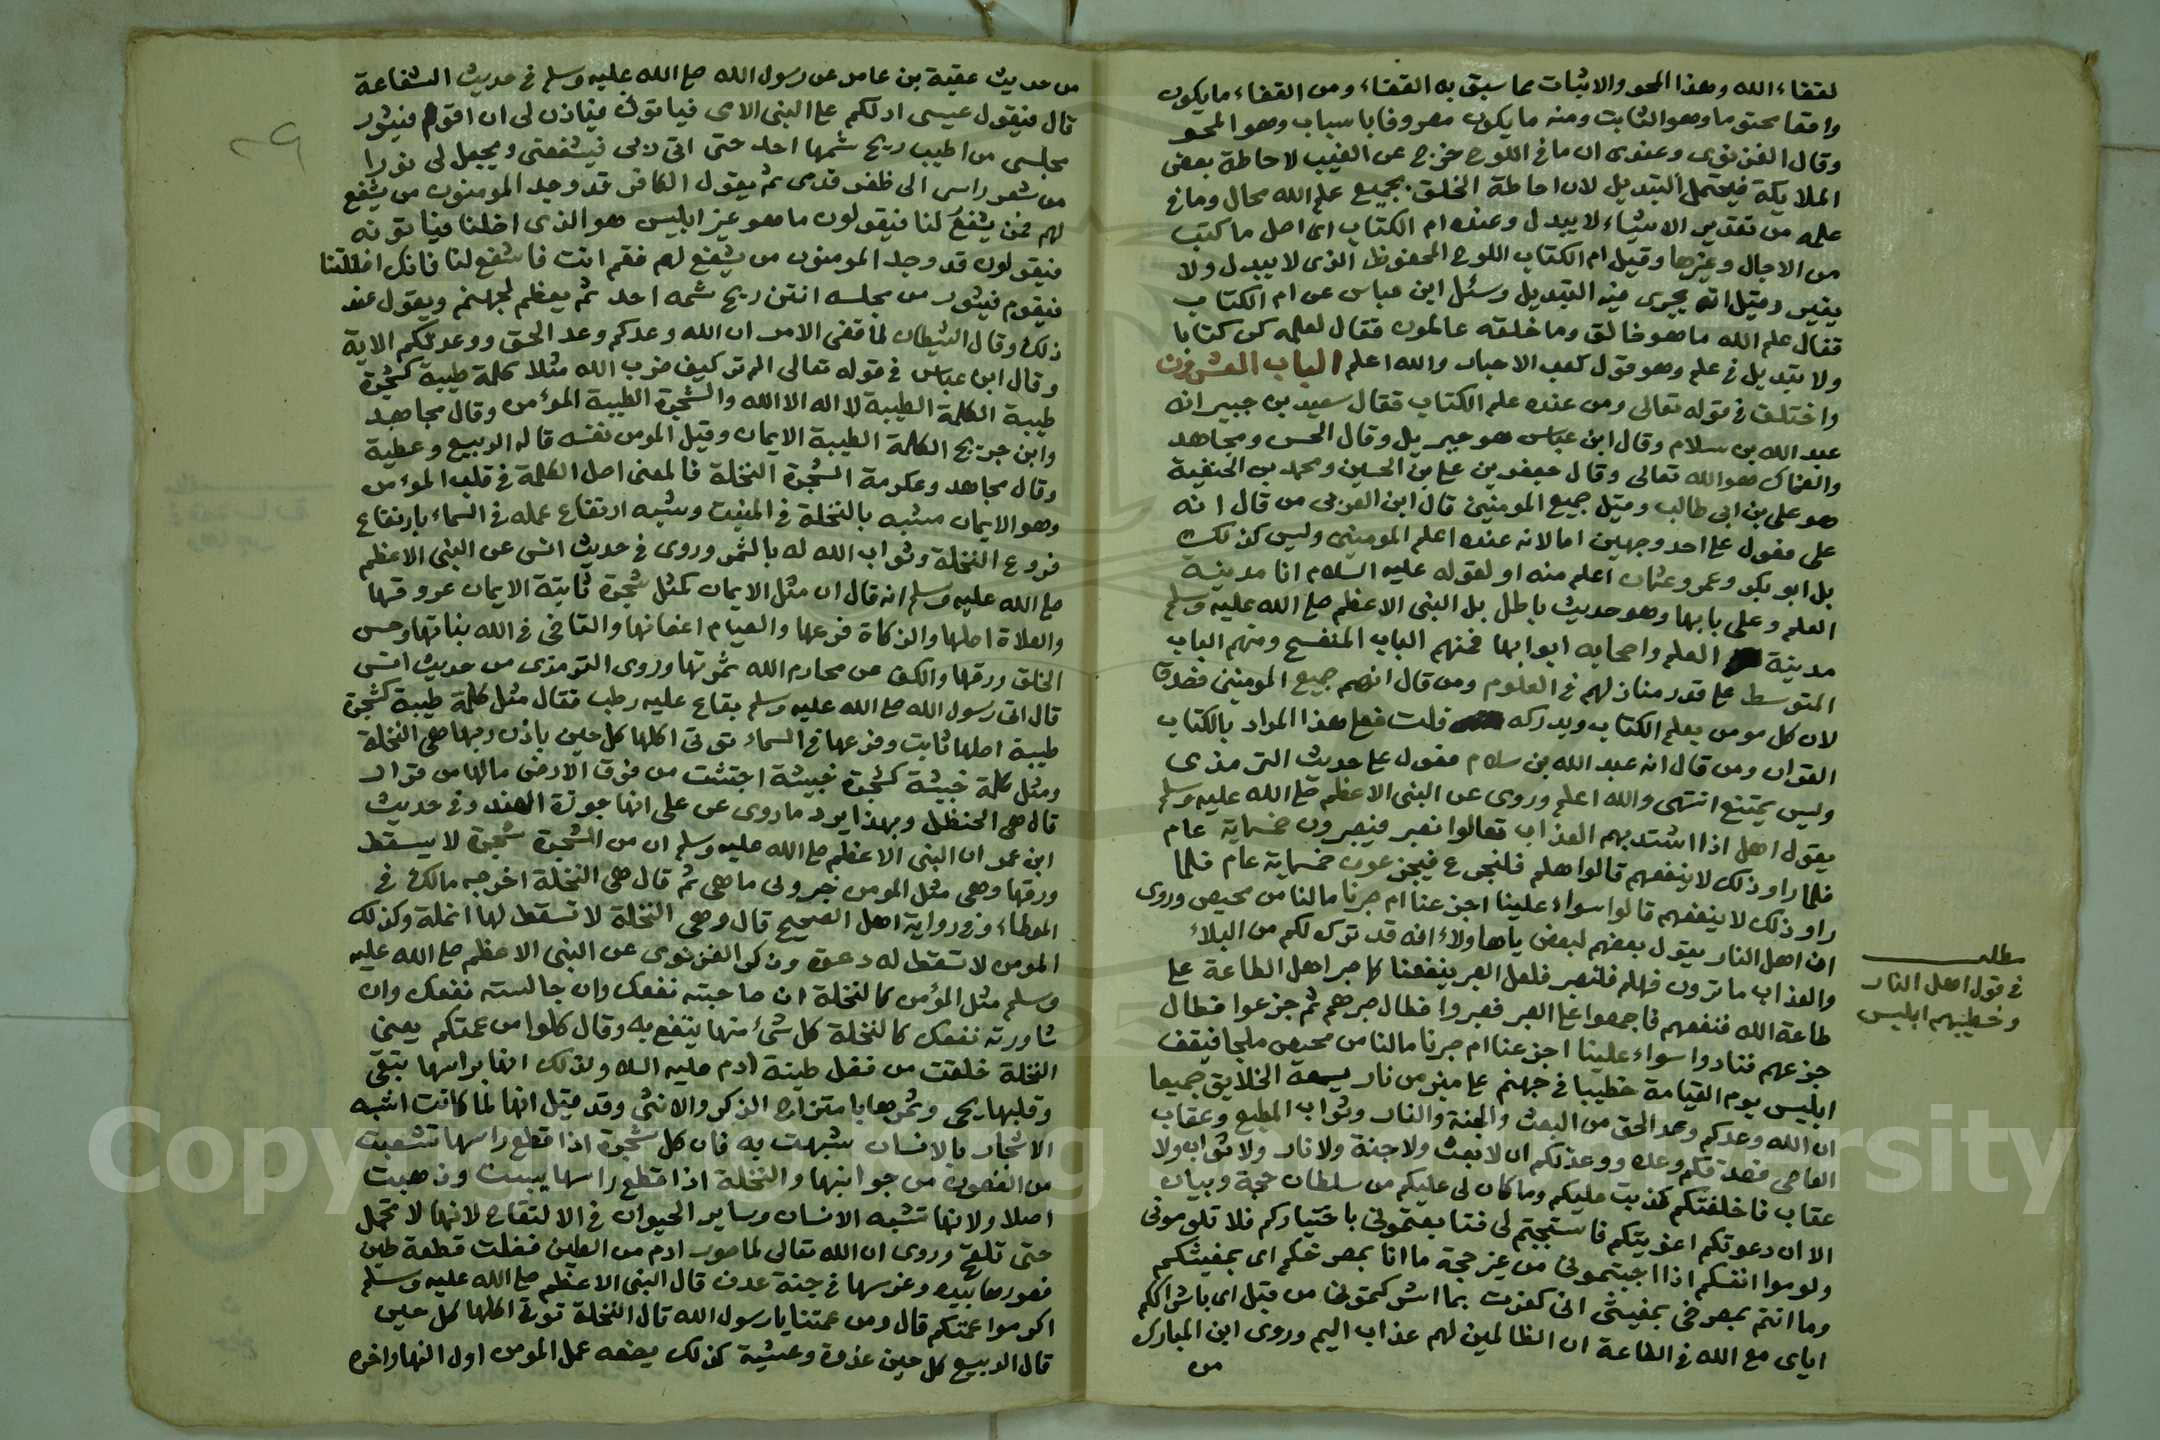 لقضاء الله وهذا المحو والاثبات مما سبق به القضاء ومن القضاء ما يكون
واقعا محتوما وهو الثابت ومنه ما يكون مصروفا باسباب وهو المحو
وقال الغزنوى وعندى ان ما فى اللوح خرج عن الغيب لاحاطة بعض
الملايكة فيحتمل التبديل لان احاطة الخلق بجميع علم الله محال وما فى
علمه من تقدير الاشياء لا يبدل وعنده ام الكتاب اى اصل ما كتب
من الاجال وغيرها وقيل ام الكتاب اللوح المحفوظ الذى لا يبدل ولا
يغير وقيل انه يجرى فيه التبديل وسئل ابن عباس عن ام الكتاب
فقال علم الله ما هو خالق وما خلقه عالمون فقال لعلمه كن كتابا
ولا تبديل فى علم وهو قول كعب الاحبار والله اعلم الباب العشرون
واختلف فى قوله تعالى ومن عنده علم الكتاب فقال سعيد بن جبير انه
عبد الله بن سلام وقال ابن عباس هو جبريل وقال الحسن ومجاهد
والضحاك هو الله تعالى وقال جعفر بن على بن الحسين ومحمد بن الحنفية
هو على بن ابى طالب وقيل جميع المومنين قال ابن العربى من قال انه
على مفول على احد وجهين اما لانه عنده اعلم المومنين وليس كذلك
بل ابو بكر وعمر وعثمان اعلم منه او لقوله عليه السلام انا مدينة
العلم وعلى بابها وهو حديث باطل بل النبى الاعظم صلى الله عليه وسلم
مدينة العلم واصحابه ابوابها فمنهم الباب المنفسح ومنهم الباب
المتوسط على قدر منازلهم فى العلوم ومن قال انهم جميع المومنين فصدق
لان كل مومن يعلم الكتاب ويدركه قلت فعلى هذا المراد بالكتاب
القران ومن قال انه عبد الله بن سلام مفول على حديث الترمذى
وليس يمتنع انتهى والله اعلم وروى عن النبى الاعظم صلى الله عليه وسلم
يقول اهل اذا اشتد بهم العذاب تعالوا نصبر فيصبرون خمسماية عام
فلما راو ذلك لا ينفعهم قالوا هلم فلنجزع فيجزعون خمسماية عام فلما
راو ذلك لا ينفعهم قالوا سواء علينا اجزعنا ام صبرنا مالنا من محيص وروى
ان اهل النار يقول بعضهم لبعض ياهاولاء انه قد نزل لكم من البلاء
والعذاب ما ترون فهلم فلنصبر فلعل الصبر ينفعنا كما صبر اهل الطاعة على
طاعة الله فنفعهم فاجمعوا على الصبر فصبروا فطال صبرهم ثم جزعوا فطال
جزعهم فنادوا سواء علينا اجزعنا ام صبرنا مالنا من محيص ملجا فيقف
ابليس يوم القيامة خطيبا فى جهنم على منبر من نار يسمعه الخلايق جميعا
ان الله وعدكم وعد الحق من البعث والجنة والنار وثواب المطيع وعقاب
العاصى فصدقكم وعده ووعدتكم ان لا بعث ولا جنة ولا نار ولا ثواب ولا
عقاب فاخلفتكم كذبت عليكم وما كان لى عليكم من سلطان حجة وبيان
الا ان دعوتكم اغويتكم فاستجبتم لى فتابعتمونى باختياركم فلا تلومونى
ولوموا انفسكم اذا اجبتمونى من غير حجة ما انا بمصرخكم اى بمغيثكم
وما انتم بمصرخى بمغيثى انى كفرت بما اشركتمونى من قبل اى باشراككم
اياى مع الله فى الطاعة ان الظالمين لهم عذاب اليم وروى ابن المبارك
من
مطلب
فى قول اهل النار
وخطيبهم ابليس
من حديث عقبة بن عامر عن رسول الله صلى الله عليه وسلم فى حديث الشفاعة
قال فيقول عيسى ادلكم على النبى الامى فياتونى فياذن لى ان اقوم فيثور
مجلسى من اطيب ريح شمها احد حتى اتى ربى فيشفعنى ويجعل لى نورا
من شعر راسى الى ظفر قدمى ثم يقول الكافر قد وجد المومنون من يشفع
لهم فمن يشفع لنا فيقولون ما هو غير ابليس هو الذى اضلنا فياتونه
فيقولون قد وجد المومنون من يشفع لهم فقم انت فاشفع لنا فانك اضللتنا
فيقوم فيثور من مجلسه انتن ريح شمه احد ثم يعظم لجهنم ويقول عند
ذلك وقال الشيطان لما قضى الامر ان الله وعدكم وعد الحق ووعدتكم الاية
وقال ابن عباس فى قوله تعالى الم تر كيف ضرب الله مثلا كلمة طيبة كشجرة
طيبة الكلمة الطيبة لا اله الا الله والشجرة الطيبة المؤمن وقال مجاهد
وابن جريج الكلمة الطيبة الايمان وقيل المومن نفسه قاله الربيع وعطية
وقال مجاهد وعكرمة الشجرة النخلة فالمعنى اصل الكلمة فى قلب المؤمن
وهو الايمان مشبه بالنخلة فى المنبت وشبه ارتفاع عمله فى السماء بارتفاع
فروع النخلة وثواب الله له بالثمر وروى فى حديث انس عن النبى الاعظم
صلى الله عليه وسلم انه قال ان مثل الايمان كمثل شجرة ثابتة الايمان عروقها
والصلاة اصلها والزكاة فرعها والصيام اغصانها والتاخى فى الله بناتها وحسن
الخلق ورقها والكف عن محارم الله ثمرتها وروى الترمذى من حديث انس
قال اتى رسول الله صلى الله عليه وسلم بقناع عليه رطب فقال مثل كلمة طيبة كشجرة
طيبة اصلها ثابت وفرعها فى السماء توتى اكلها كل حين باذن ربها هى النخلة
ومثل كلمة خبيثة كشجرة خبيثة اجتثت من فوق الارض مالها من قرار
قال هى الحنظل وبهذا يرد ما روى عن على انها جوزة الهند وفى حديث
ابن عمر ان النبى الاعظم صلى الله عليه وسلم ان من الشجرة شجرة لا يسقط
ورقها وهى مثل المومن خبرونى ما هى ثم قال هى النخلة اخرجه مالك فى
الموطاء وفى رواية اهل الصحيح قال وهى النخلة لا تسقط لها انملة وكذلك
المومن لا تسقط له دعوة وذكر الغزنوى عن النبى الاعظم صلى الله عليه
وسلم مثل المؤمن كالنخلة ان صاحبته نفعك وان جالسته نفعك وان
شاورته نفعك كالنخلة كل شئ منها ينتفع به وقال كلوا من عمتكم يعنى
النخلة خلقت من فضل طينة ادم عليه السلا ولذلك انها براسها تبقى
وقلبها يحى وثمرها بامتزاج الذكر والانثى وقد قيل انها لما كانت اشبه
الاشجار بالانسان شبهت به فان كل شجرة اذا قطع راسها تشعبت
من الغصون من جوانبها والنخلة اذا قطع راسها يبست وذهبت
اصلا ولانها تشبه الانسان وساير الحيوان فى الالتقاح لانها لا تحمل
حتى تلقح وروى ان الله تعالى لما صور ادم من الطين فضلت قطعة طين
فصورها بيده وغرسها فى جنة عدن قال النبى الاعظم صلى الله عليه وسلم
اكرموا عمتكم قال ومن عمتنا يا رسول الله قال النخلة توتى اكلها كل حين
قال الربيع كل حين غدوة وعشية كذلك يصعد عمل المومن اول النهار واخره
٢٩